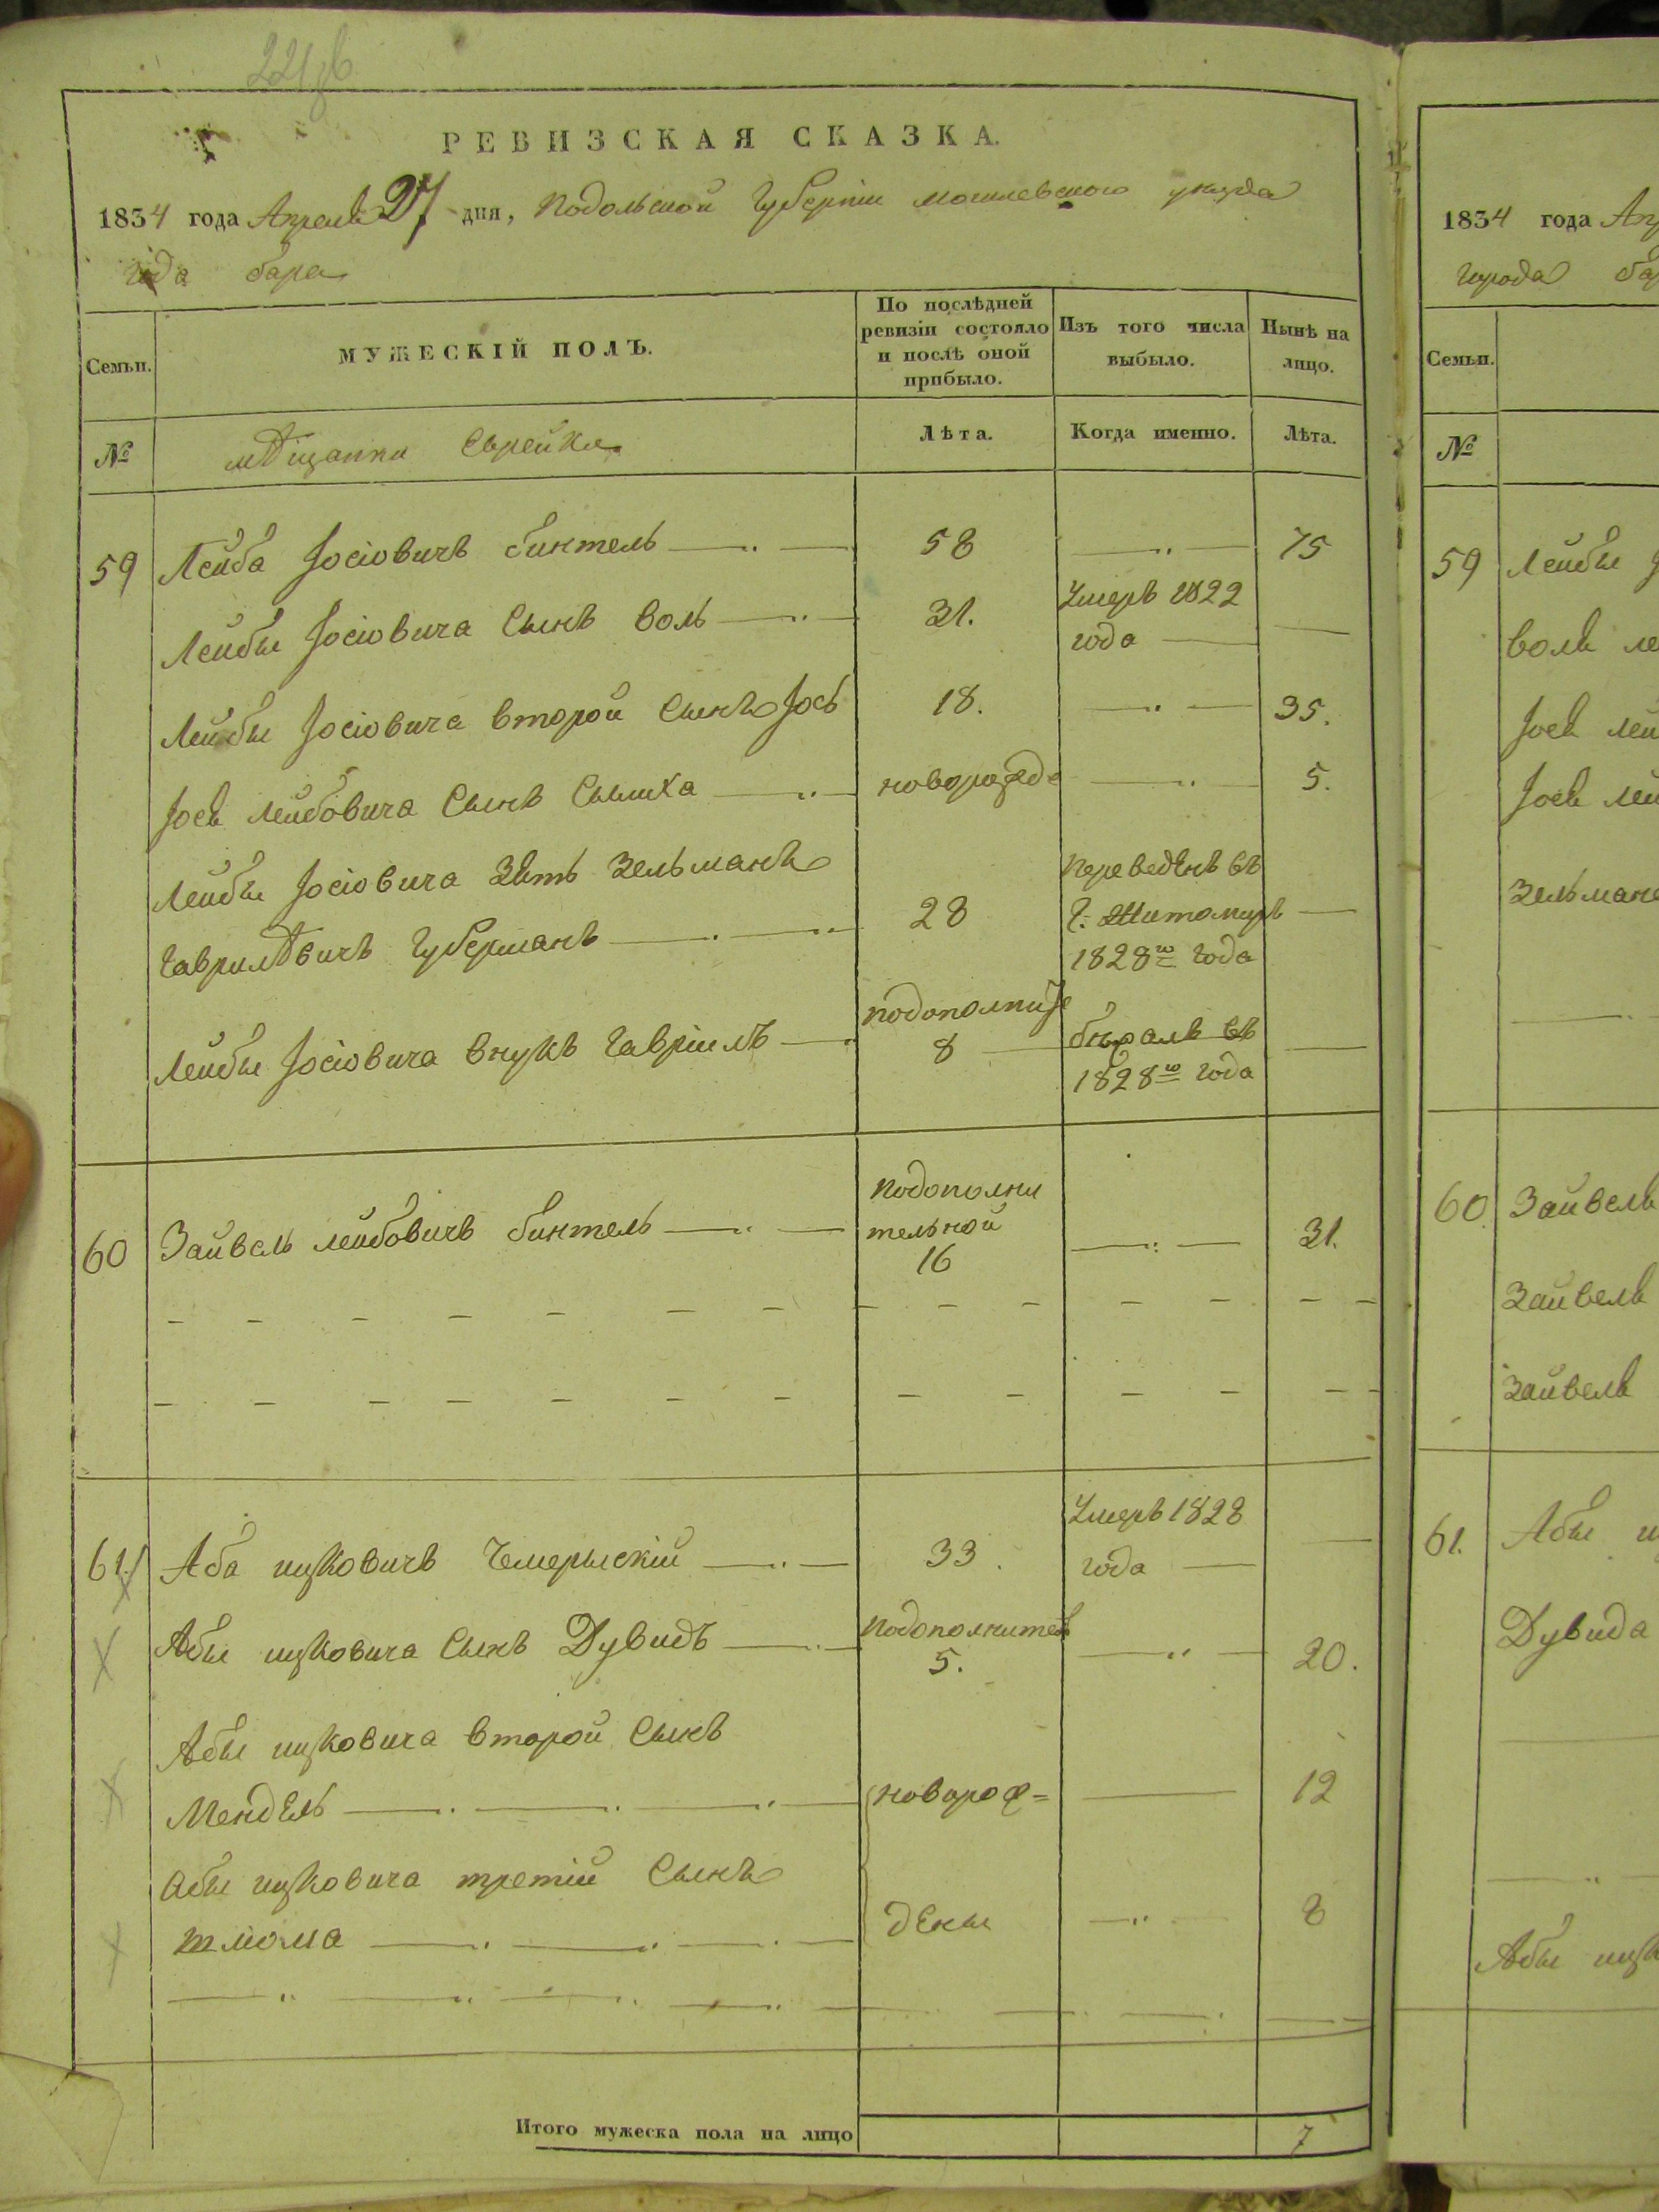 221об
РЕВИЗСКАЯ СКАЗКА.
1834 года Апреля 27 дня, Подольской Губернiи могилевского уезда
года бара
Семьи.
МУЖЕСКIЙ ПОЛЪ.
По послѣдней ревизiи состояло и послѣ оной прибыло.
Изъ того числа выбыло.
Нынѣ на лицо.
№
мѣщанки Еврейки
Лѣта.
Когда именно.
Лѣта.
59 Лейба Іосiовичъ бинтель 58 75
Лейбы Іосiовича Сынъ Воль 31. Умеръ 1822
года
Лейбы Іосiовича второй Сынъ Іось 18. 35.
Іося Лейбовича Сынъ Сымха новорожде 5.
Лейбы Іосiовича Зять Зельманъ
Гаврилѣвичъ Губерманъ 28 Переведѣнъ въ
Г. Житомиръ
1828го года
Лейбы Іосiовича внукъ Гаврiилъ 8 въ
1828го года
60 Зайвель лейбовичъ бинтель Подополни
тельной
16 31.
61. Аба ицковичъ Чемерыскiй 33. Умеръ 1828
года
Абы ицковича Сынъ Дувидъ Подополнител
5. 20.
Абы ицковича второй Сынъ
Мендель новорож= 12
Абы ицковича третiй Сынъ
шлиома дены 8
Итого мужеска пола на лицо 7
1834 года Апр
города бар
Семьи.
№
59 Лейбы
воля ле
Іося лей
Іося лей
Зельмана
60 Зайвеля
Зайвеля
Зайвеля
61. Абы
Дувида
Абы ицк